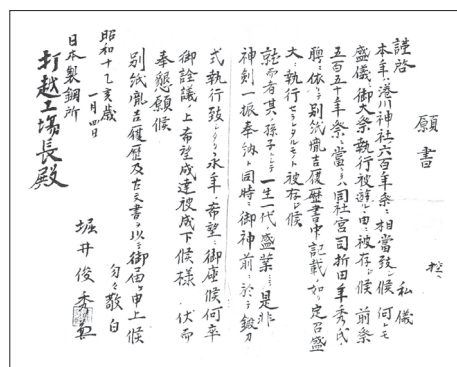 願書
控
私儀
謹啓
本年ハ湊川神社六百年祭ニ相當致シ候 何トモ
盛儀ノ御大祭執行被遊ル由ニ被存ジ候 前祭
五百五十年祭ニ當ツテハ同社宮司折田年秀氏ノ
聘ニ依ツテ別紙胤吉履歴書中ニ記載ノ如ク定召盛
大ニ執行セラレタルモノト被存ジ候
就而者其ノ孫子トシテ一生一代ノ盛業ニ是非
神剣一振奉納ト同時ニ御神前ニ於テ鍛刀
式執行致シタク永年ノ希望ニ御座候何卒
御詮議ノ上希望成達被成下候様 伏而
奉懇願候
別紙胤吉履歴及古文書ヲ以テ御届ケ申上候
匆々敬白
昭和十乙亥歳
一月四日
堀井俊秀
日本製鋼所
打越工場長殿